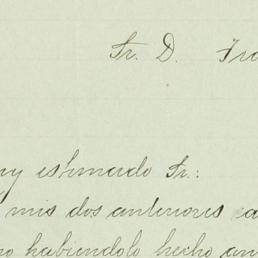 Sr. D. Fra
uy estimado Sr.:
mis dos anteriores ca
no habiendolo hecho an